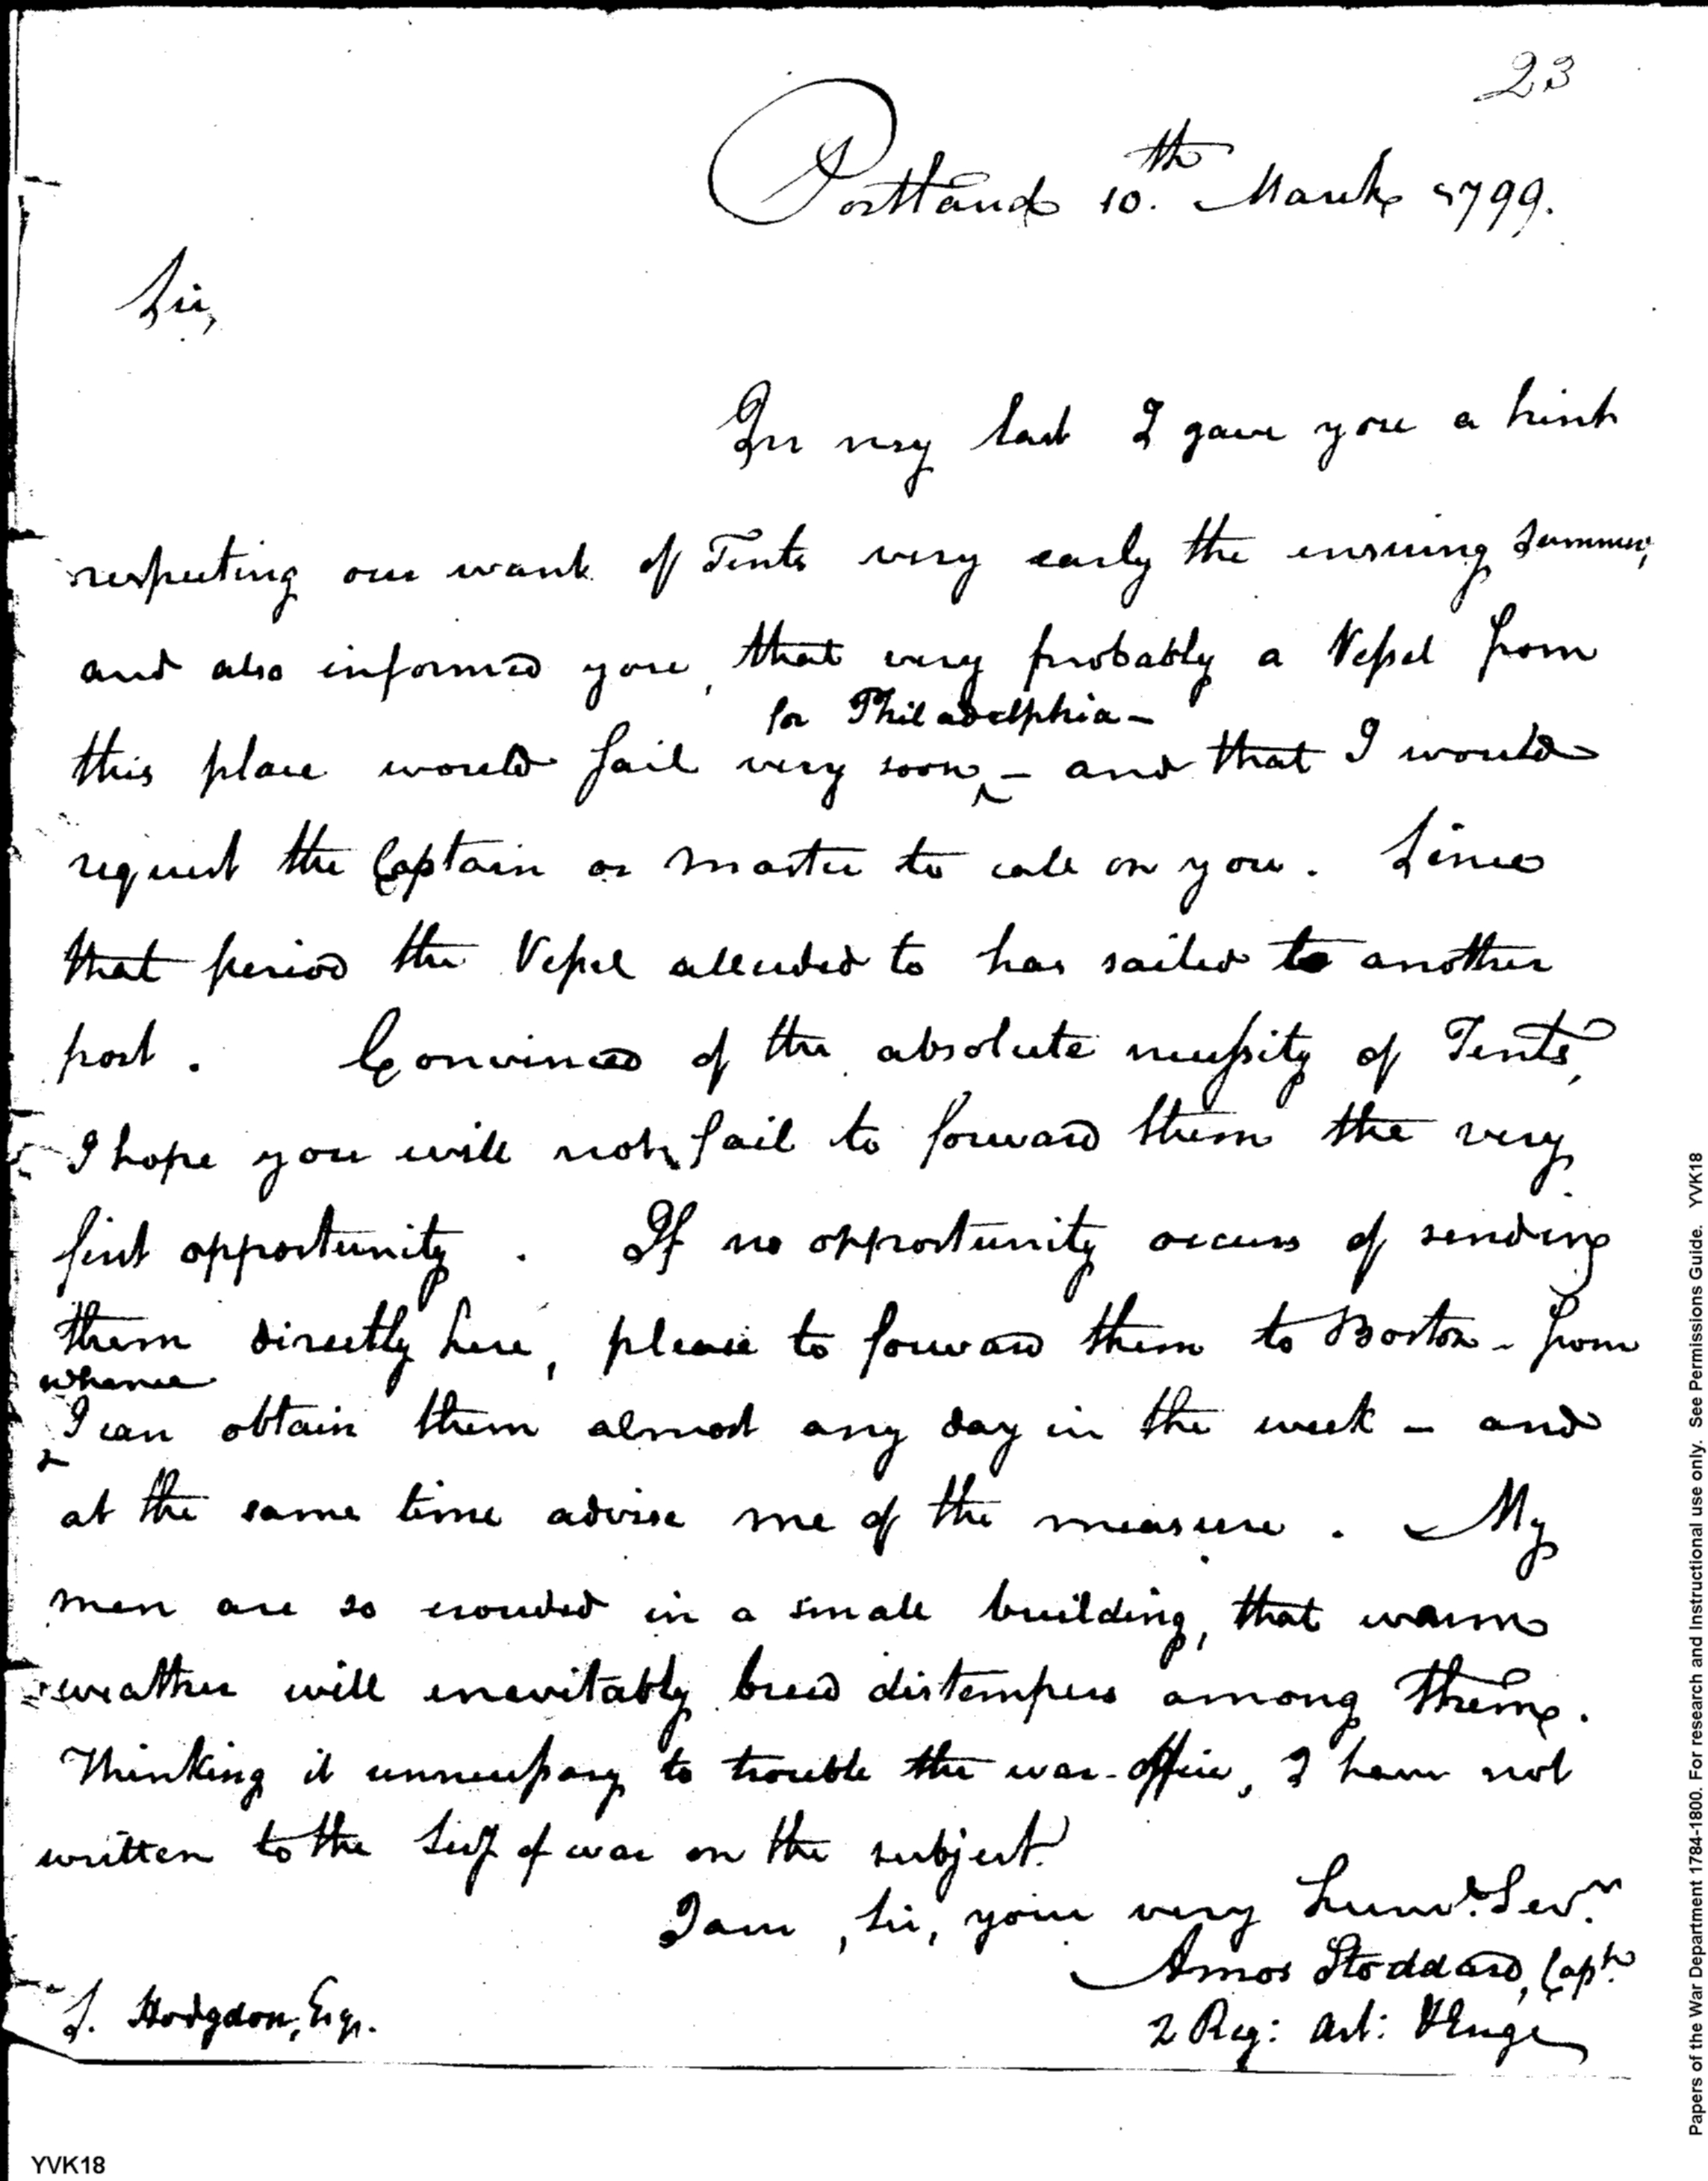 23
Portland 10.th March 1799.
Sir,
In my last I gave you a hint
respecting our want of Tents very early the ensuing Summer,
and also informed you, that very probably a Vessel from
for Philadelphia -
this place would sail very soon ^ - and that I would
request the Captain or Master to call on you. Since
that period the Vessel alluded to has sailed to another
port. Convinced of the absolute necessity of Tents,
I hope you will not fail to forward them the very
first opportunity. If no opportunity occurs of sending
them directly here, please to forward them to Boston - from
whence
^ I can obtain them almost any day in the week - and
at the same time advise me of the measure. My
men are so crouded in a small building, that warm
weather will inevitably breed distempers among them.
Thinking it unnecessary to trouble the war-office, I have not
written to the Secy of war on the subject.
I am, Sir, your very hum. Serv.
Amos Stoddard, Capt.
2 Reg: Art: & Enge
S. Hodgdon, Esqr.
YVK18
Papers of the War Department 1784-1800. For research and instructional use only. See Permissions Guide. YVK18